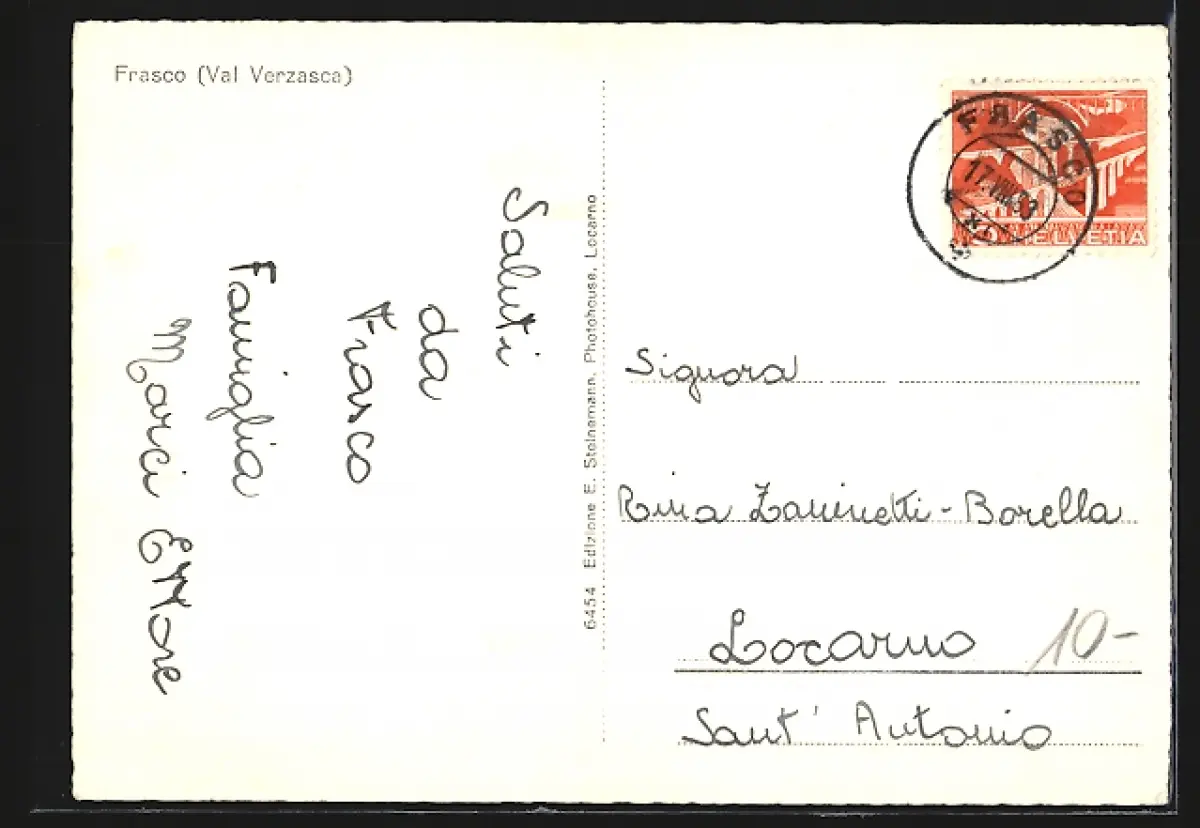 Frasco (Val Verzasca)
Saluti
da
Frasco
Famiglia
Marci Ettore
6454 Edizione E. Steinemann, Photohouse, Locarno
FRASCO
17.VIII.53
HELVETIA
Signora
Rina Zaninetti-Borella
Locarno 10-
Sant' Antonio